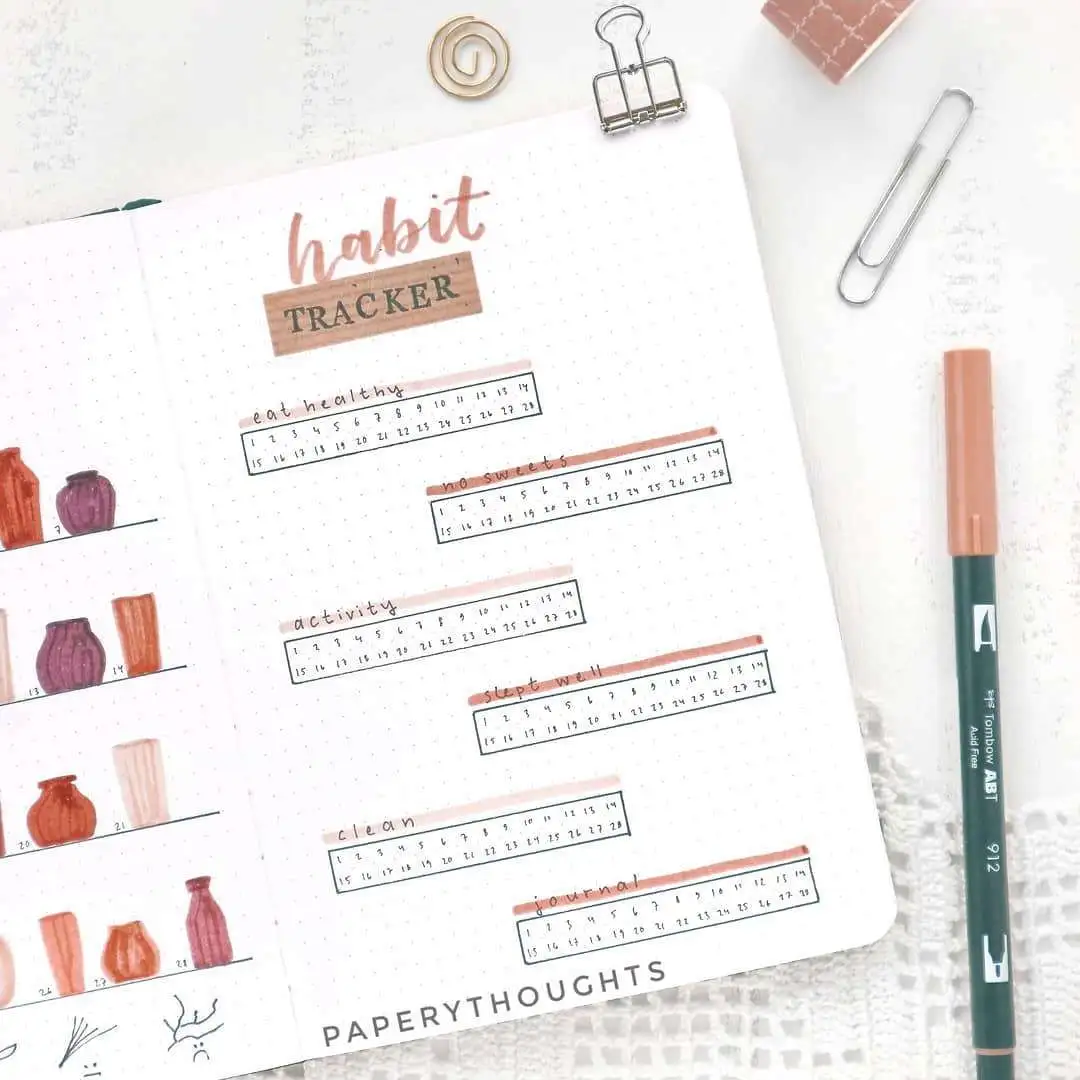 habit
TRACKER
eat healthy
1 2 3 4 5 6 7 8 9 10 11 12 13 14
15 16 17 18 19 20 21 22 23 24 25 26 27 28
no sweets
1 2 3 4 5 6 7 8 9 10 11 12 13 14
15 16 17 18 19 20 21 22 23 24 25 26 27 28
activity
1 2 3 4 5 6 7 8 9 10 11 12 13 14
15 16 17 18 19 20 21 22 23 24 25 26 27 28
slept well
1 2 3 4 5 6 7 8 9 10 11 12 13 14
15 16 17 18 19 20 21 22 23 24 25 26 27 28
clean
1 2 3 4 5 6 7 8 9 10 11 12 13 14
15 16 17 18 19 20 21 22 23 24 25 26 27 28
journal
1 2 3 4 5 6 7 8 9 10 11 12 13 14
15 16 17 18 19 20 21 22 23 24 25 26 27 28
PAPERYTHOUGHTS
7
13 14
20 21
26 27 28
Tombow ABT 912
Acid Free